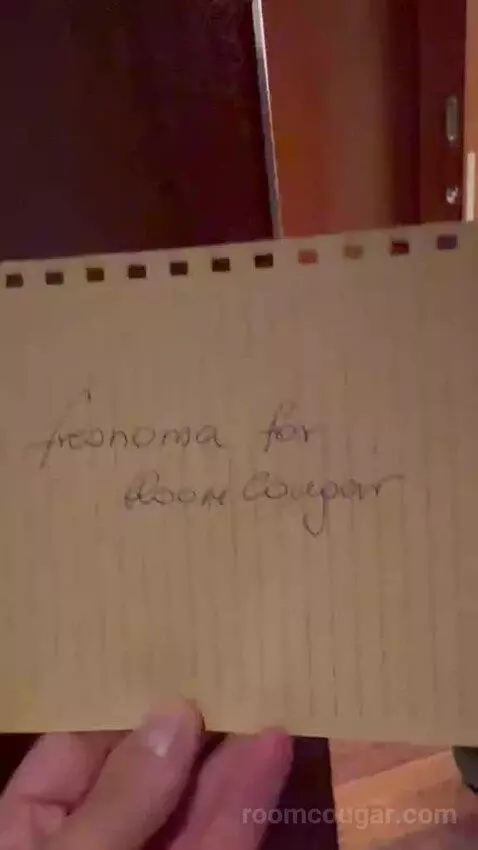 freonoma for
Room Cougar
roomcougar.com